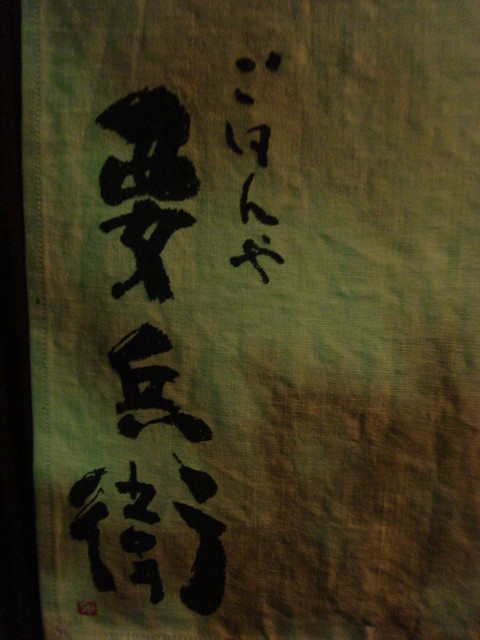 ごはんや
要兵衛